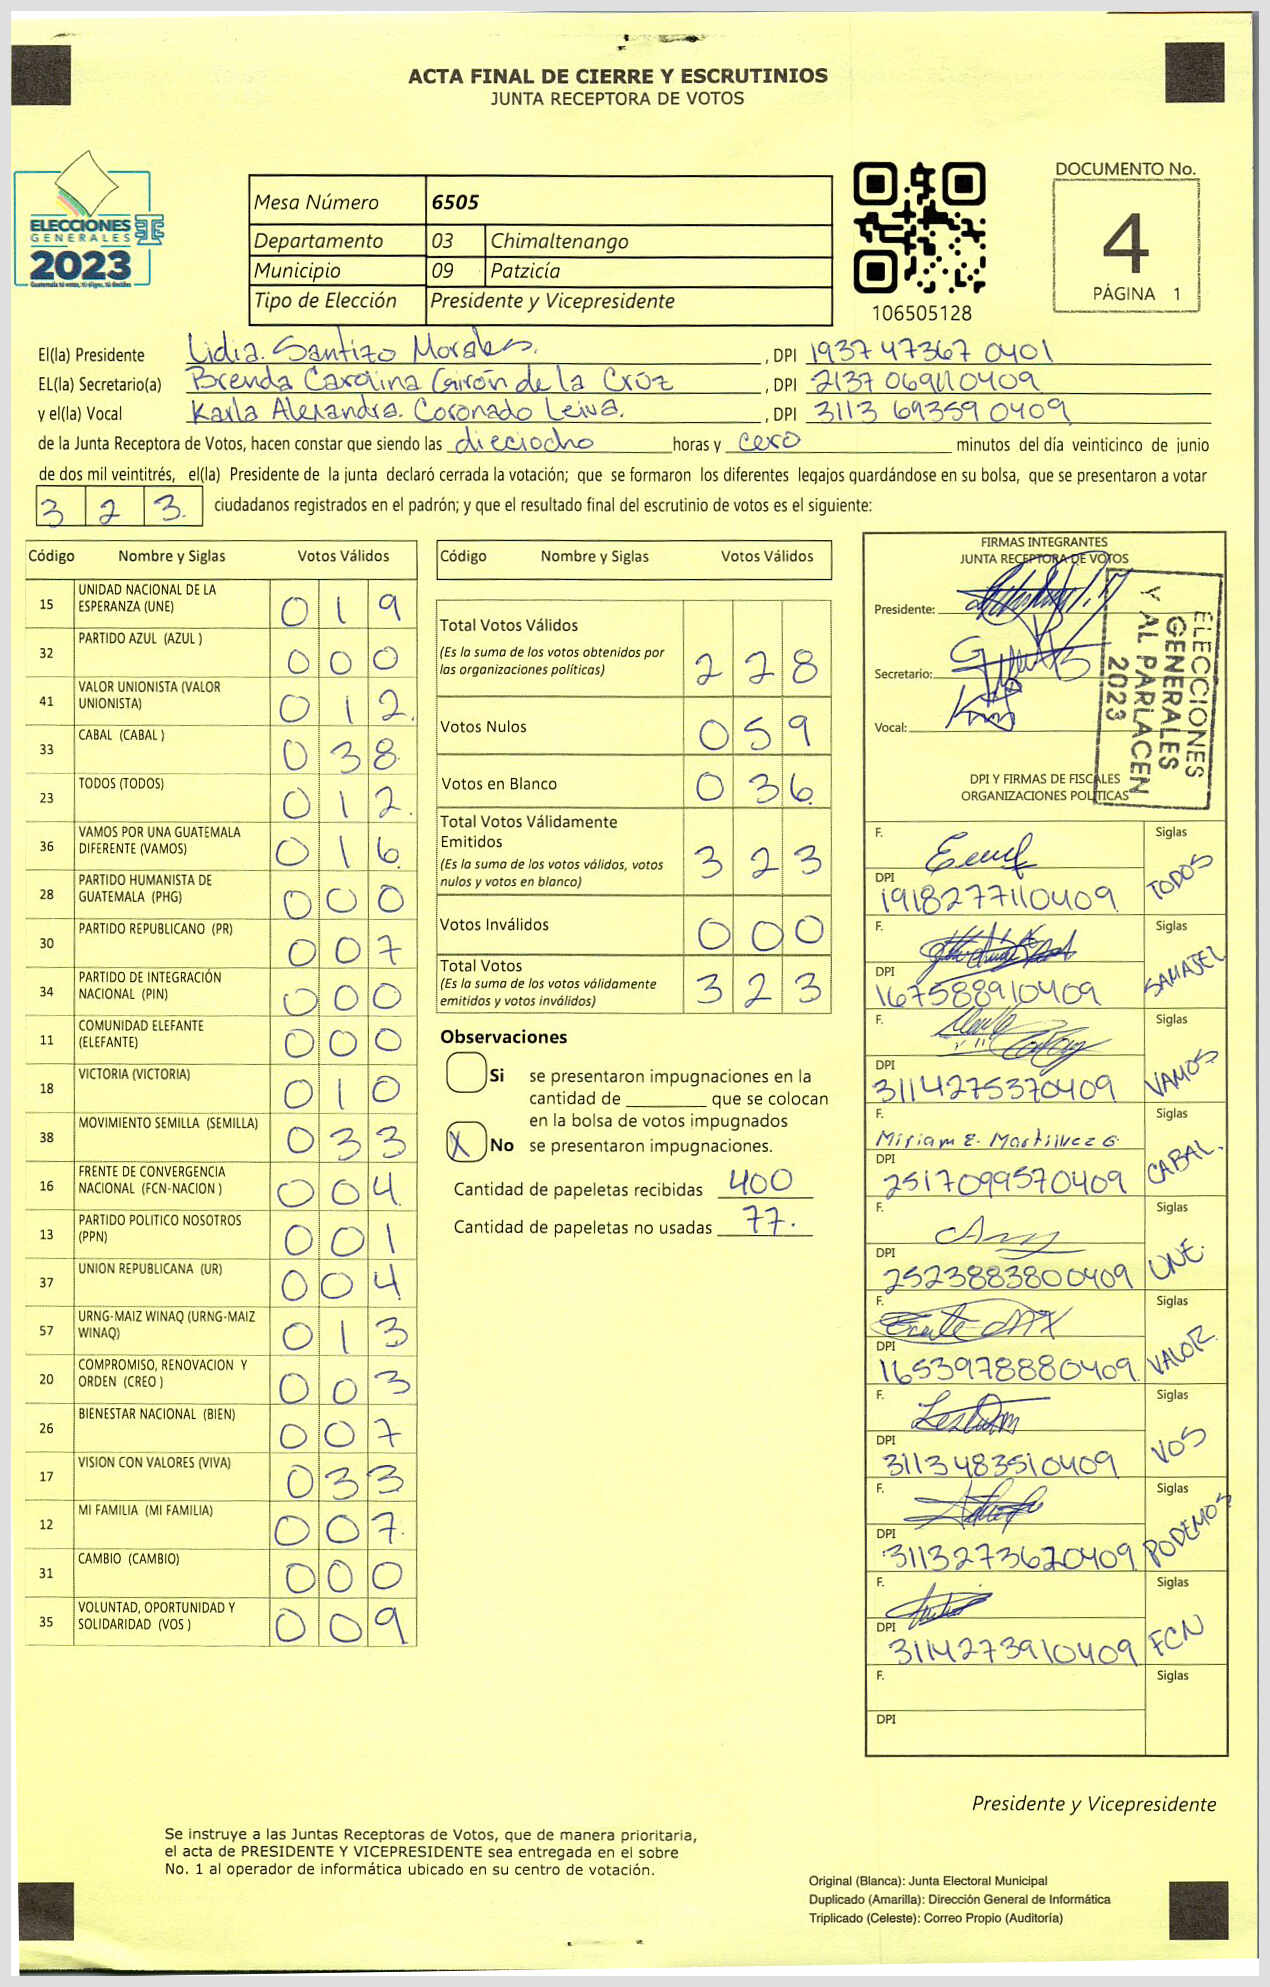 ACTA FINAL DE CIERRE Y ESCRUTINIOS
JUNTA RECEPTORA DE VOTOS
ELECCIONES
GENERALES
2023
Guatemala tú votas, tú eliges, tú decides
Mesa Número 6505
Departamento 03 Chimaltenango
Municipio 09 Patzicía
Tipo de Elección Presidente y Vicepresidente
106505128
DOCUMENTO No.
4
PÁGINA 1
El(la) Presidente Lidia. Santizo Morales. , DPI 1937 47367 0401
EL(la) Secretario(a) Brenda Carolina Girón de la Crúz , DPI 2137 06911 0409
y el(la) Vocal Karla Alexandra. Coronado Leiva. , DPI 3113 69359 0409
de la Junta Receptora de Votos, hacen constar que siendo las dieciocho horas y cero minutos del día veinticinco de junio
de dos mil veintitrés, el(la) Presidente de la junta declaró cerrada la votación; que se formaron los diferentes legajos guardándose en su bolsa, que se presentaron a votar
3 2 3. ciudadanos registrados en el padrón; y que el resultado final del escrutinio de votos es el siguiente:
Código Nombre y Siglas Votos Válidos
15 UNIDAD NACIONAL DE LA ESPERANZA (UNE) 0 1 9
32 PARTIDO AZUL (AZUL ) 0 0 0
41 VALOR UNIONISTA (VALOR UNIONISTA) 0 1 2.
33 CABAL (CABAL ) 0 3 8
23 TODOS (TODOS) 0 1 2.
36 VAMOS POR UNA GUATEMALA DIFERENTE (VAMOS) 0 1 6
28 PARTIDO HUMANISTA DE GUATEMALA (PHG) 0 0 0
30 PARTIDO REPUBLICANO (PR) 0 0 7
34 PARTIDO DE INTEGRACIÓN NACIONAL (PIN) 0 0 0
11 COMUNIDAD ELEFANTE (ELEFANTE) 0 0 0
18 VICTORIA (VICTORIA) 0 1 0
38 MOVIMIENTO SEMILLA (SEMILLA) 0 3 3
16 FRENTE DE CONVERGENCIA NACIONAL (FCN-NACION ) 0 0 4
13 PARTIDO POLITICO NOSOTROS (PPN) 0 0 1
37 UNION REPUBLICANA (UR) 0 0 4
57 URNG-MAIZ WINAQ (URNG-MAIZ WINAQ) 0 1 3
20 COMPROMISO, RENOVACION Y ORDEN (CREO ) 0 0 3
26 BIENESTAR NACIONAL (BIEN) 0 0 7
17 VISION CON VALORES (VIVA) 0 3 3
12 MI FAMILIA (MI FAMILIA) 0 0 7.
31 CAMBIO (CAMBIO) 0 0 0
35 VOLUNTAD, OPORTUNIDAD Y SOLIDARIDAD (VOS ) 0 0 9
Código Nombre y Siglas Votos Válidos
Total Votos Válidos 2 2 8
(Es la suma de los votos obtenidos por
las organizaciones políticas)
Votos Nulos 0 5 9
Votos en Blanco 0 3 6
Total Votos Válidamente
Emitidos 3 2 3
(Es la suma de los votos válidos, votos
nulos y votos en blanco)
Votos Inválidos 0 0 0
Total Votos
(Es la suma de los votos válidamente
emitidos y votos inválidos) 3 2 3
Observaciones
Si se presentaron impugnaciones en la
cantidad de ________ que se colocan
en la bolsa de votos impugnados
X No se presentaron impugnaciones.
Cantidad de papeletas recibidas 400
Cantidad de papeletas no usadas 77.
FIRMAS INTEGRANTES
JUNTA RECEPTORA DE VOTOS
Presidente:
Secretario:
Vocal:
ELECCIONES
GENERALES
Y AL PARLACEN
2023
DPI Y FIRMAS DE FISCALES
ORGANIZACIONES POLITICAS
F. Siglas
DPI 1918277110409 TODOS
F. Siglas
DPI 167588910409 SAMAJEL
F. Siglas
DPI 3114275370409 VAMOS
F. Miriam E. Martinez G. Siglas
DPI 2517099570409 CABAL.
F. Siglas
DPI 2523883800409 UNE.
F. Siglas
DPI 1653978880409. VALOR.
F. Siglas
DPI 3113483510409 VOS
F. Siglas
DPI 3113273620409 PODEMOS
F. Siglas
DPI 3114273910409 FCN
F. Siglas
DPI
Presidente y Vicepresidente
Se instruye a las Juntas Receptoras de Votos, que de manera prioritaria,
el acta de PRESIDENTE Y VICEPRESIDENTE sea entregada en el sobre
No. 1 al operador de informática ubicado en su centro de votación.
Original (Blanca): Junta Electoral Municipal
Duplicado (Amarilla): Dirección General de Informática
Triplicado (Celeste): Correo Propio (Auditoría)